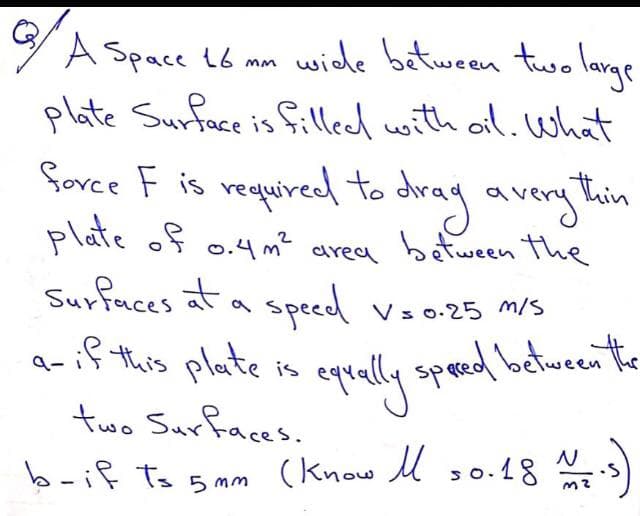 Q/ A Space 16 mm wide between two large
plate Surface is filled with oil. What
force F is required to drag a very thin
plate of 0.4 m² area between the
Surfaces at a speed V = 0.25 m/s
a- if this plate is equally spaced between the
two Surfaces.
b- if Ts 5 mm (Know M = 0.18 N/m² .s)